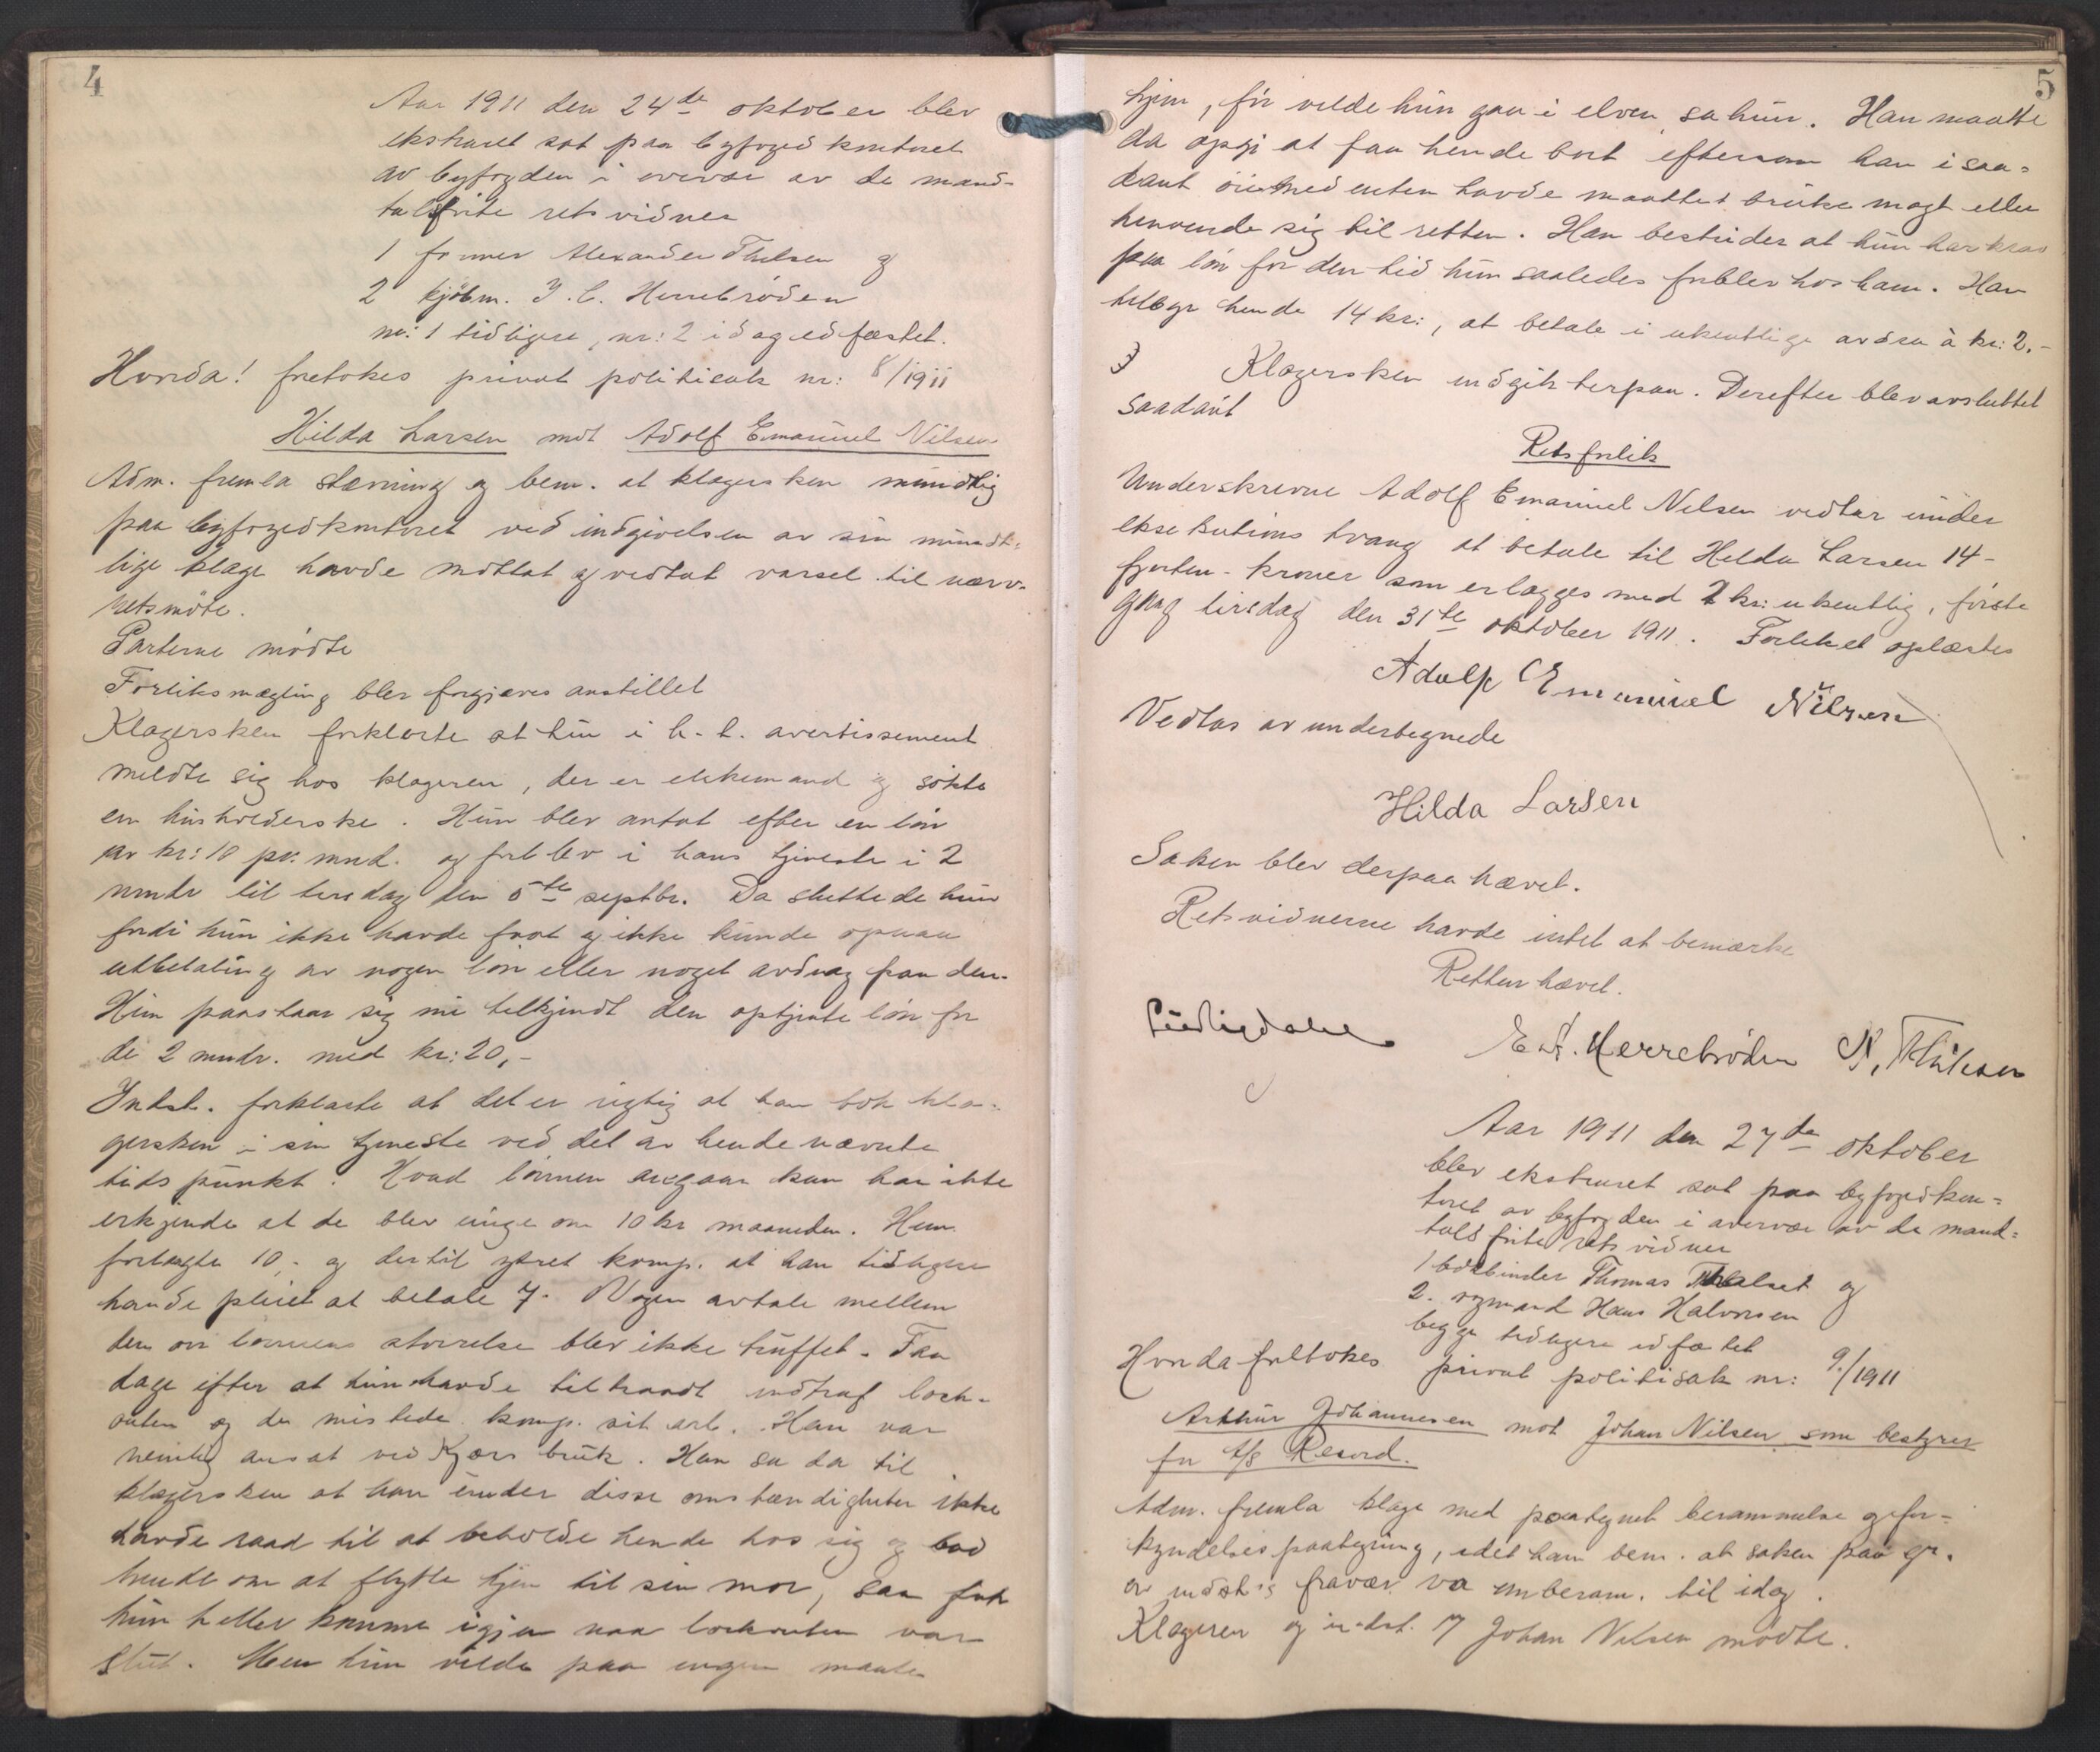 4
Aar 1911 den 24de oktober blev
ekstraret sat paa byfogedkontoret
av byfogden i overvær av de mand-
talsfrite retsvidner
1 former Alexander Thilsen og
2 kjøbm. Herrebrøden
nr: 1 tidligere, nr: 2 idag edfæstet.
Hvorda! foretokes privat politisak nr: 8/1911
Hilda Larsen mot Adolf Emanuel Nilsen
Adm. fremla stævning og bem. at klagersken mundtlig
paa byfogedkontoret ved indgivelsen av sin mundt-
lige klage havde mottat og vedtat varsel til nærv.
retsmøte.
Parterne mødte
Forliksmægling blev forgjæves anstillet
Klagersken forklarte at hun i h. t. avertissement
meldte sig hos klageren, der er enkemand og søkte
en husholderske. Hun blev antat efter en løn
av kr: 10 pr. mnd. og forblev i hans tjeneste i 2
mndr til tirsdag den 5te septbr. Da sluttede hun
fordi hun ikke havde faat og ikke kunde opnaa
utbetaling av nogen løn eller noget avdrag paa den.
Hun paastaar sig nu tilkjendt den optjente løn for
de 2 mndr. med kr: 20,-
Indst. forklarte at det er rigtig at han tok kla-
gersken i sin tjeneste ved det av hende nævnte
tidspunkt. Hvad lønnen angaar kan han ikke
erkjende at de blev enige om 10 kr maaneden. Hun
forlangte 10,- og dertil ytret komp. at han tidligere
havde pleiet at betale 7.- Nogen avtale mellem
dem om lønnens størrelse blev ikke truffet. Faa
dage efter at hun havde tiltraadt indtraf lock-
outen og da mistede komp. sit arb. Han var
nemlig ansat ved Kjærs bruk. Han sa da til
klagersken at han under disse omstændigheter ikke
havde raad til at beholde hende hos sig og bad
hende om at flytte hjem til sin mor, saa fik
hun heller komme igjen naar lockouten var
slut. Men hun vilde paa ingen maate
5
hjem, før vilde hun gaa i elven, sa hun. Han maatte
da opgi at faa hende bort eftersom han i saa-
dant øiemed enten havde maattet bruke magt eller
henvende sig til retten. Han bestrider at hun har krav
paa løn for den tid hun saaledes forblev hos ham. Han
tilbyr hende 14 kr:, at betale i ukentlige avdrag à kr: 2.-
Klagersken indgik herpaa. Derefter blev avsluttet
saadant
Retsforlik
Underskrevne Adolf Emanuel Nilsen vedtar under
eksekutions tvang at betale til Hilda Larsen 14-
fjorten- kroner som erlægges med 2 kr: ukentlig, første
gang tirsdag den 31te oktober 1911. Forliket oplæstes
Adolf Emanuel Nilsen
Vedtas av undertegnede
Hilda Larsen
Saken blev derpaa hævet.
Retsvidnerne havde intet at bemærke
Retten hævet.
Herrebrøden A. Thilesen
Aar 1911 den 27de oktober
blev ekstraret sat paa byfogedkon-
toret av byfogden i overvær av de mand-
talsfrite retsvidner
1 bokbinder Thomas og
2. rymand Hans Halvorsen
begge tidligere edfæstet
Hvorda foretokes privat politisak nr: 9/1911
Arthur Johannesen mot Johan Nilsen som bestyrer
for A/S Record.
Adm. fremla klage med paategnet berammelse og for-
kyndelsespaategning, idet han bem. at saken paa gr.
av indst.s fravær var omberam. til idag.
Klageren og indst. Johan Nilsen mødte.